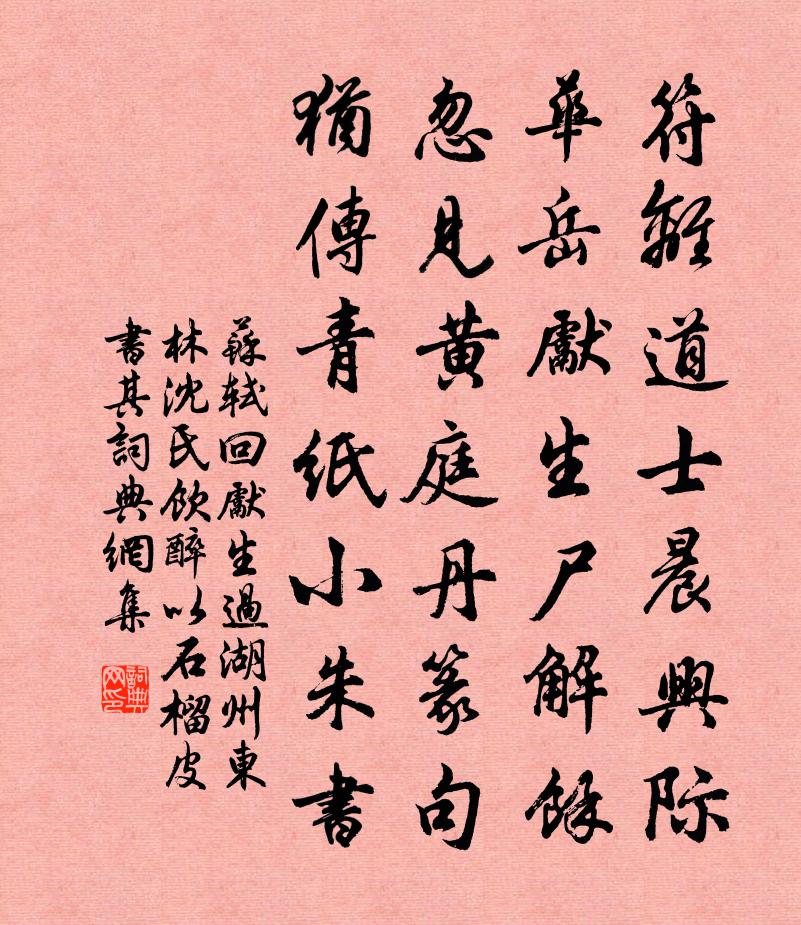 符離道士晨興際
華岳獻生尸解餘
忽見黄庭丹篆句
猶傳青紙小朱書
蘇軾回獻生過湖州東
林沈氏飲醉以石榴皮
書其詞典網集
詞典
网印